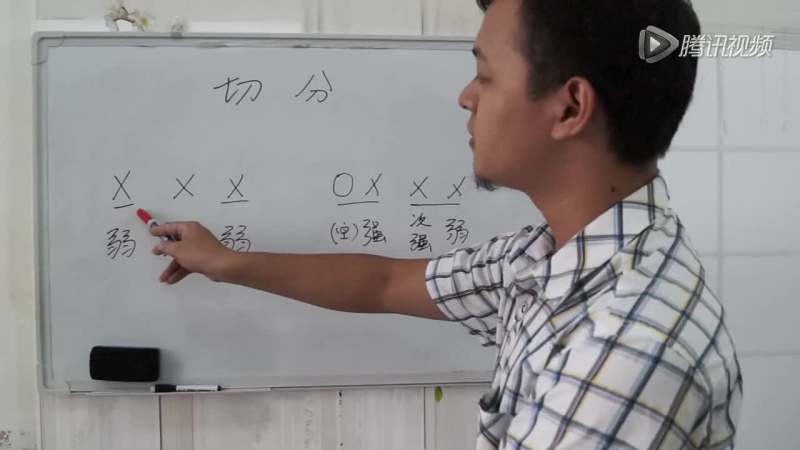 腾讯视频
切 分
X X X O X X X
弱 弱 (空) 强 次强 弱